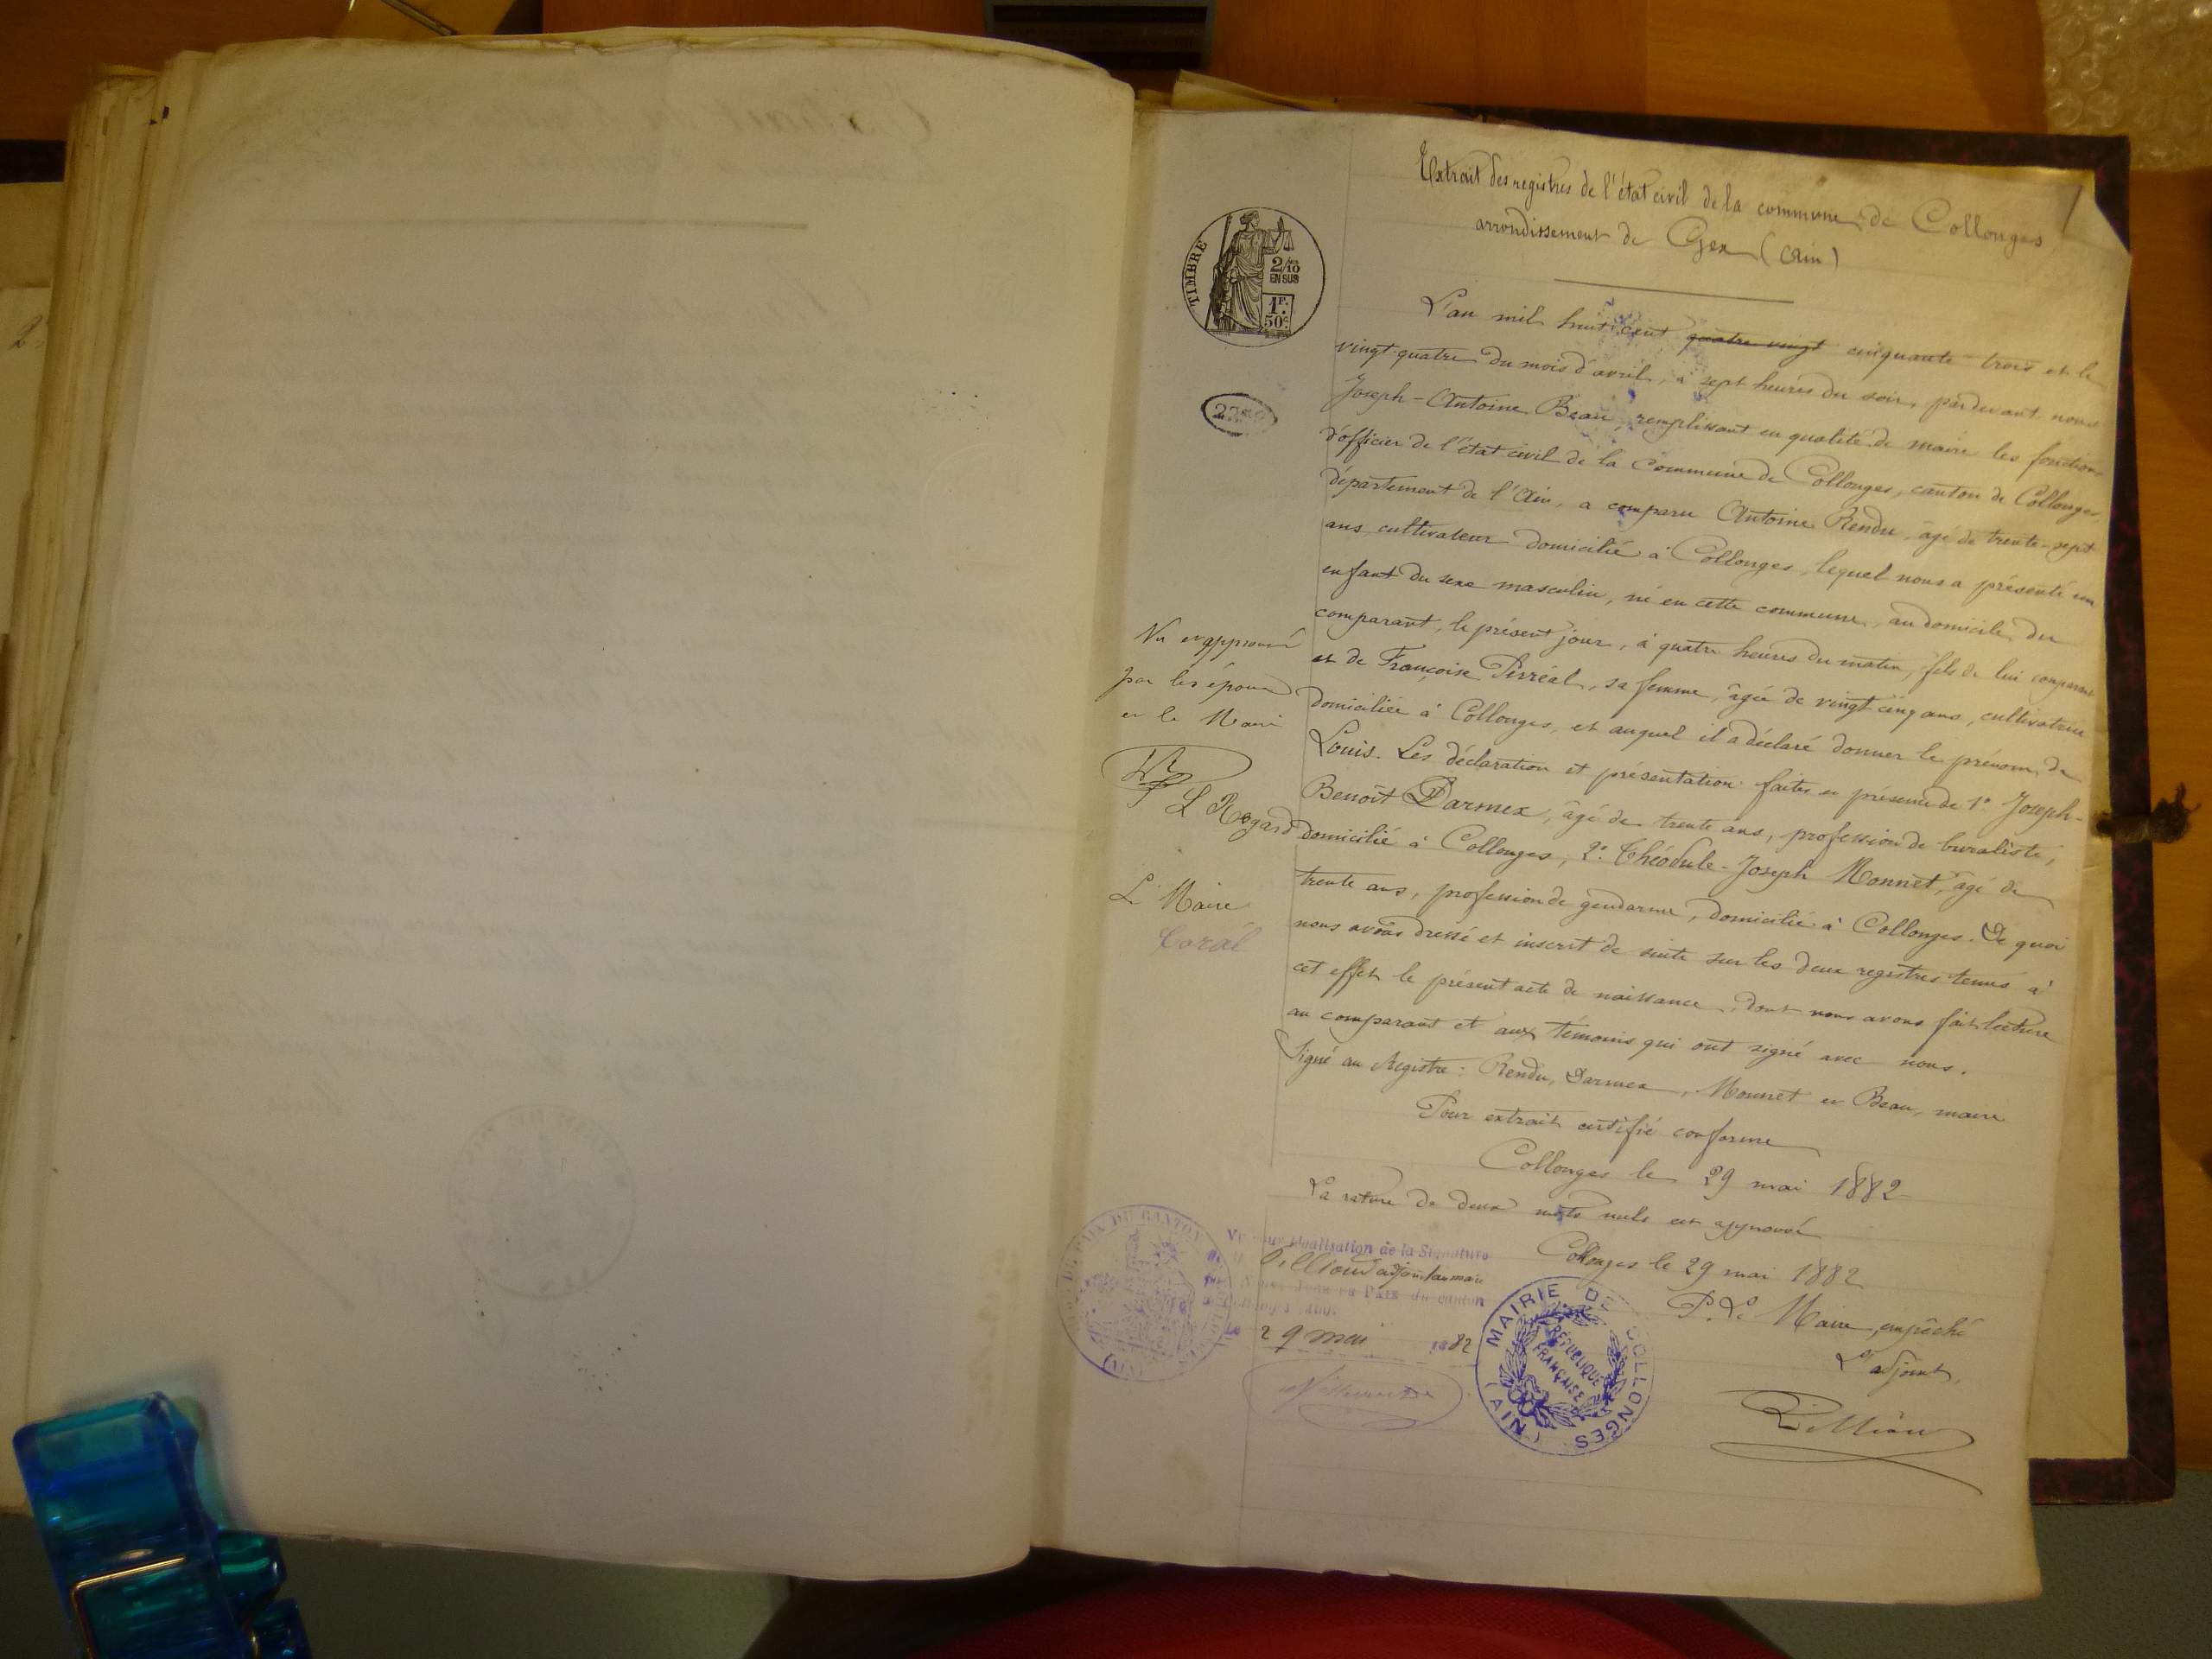 Extrait des registres de l'état civil de la commune de Collonges
arrondissement de Gex (Ain)
TIMBRE
2/10
EN SUS
1F.
50c.
L'an mil huit cent quatre vingt cinquante trois et le
vingt-quatre du mois d'avril, à sept heures du soir, pardevant nous
Joseph-Antoine Beau, remplissant en qualité de maire les fonctions
d'officier de l'état civil de la Commune de Collonges, canton de Collonges,
département de l'Ain, a comparu Antoine Rendu, âgé de trente-sept
ans, cultivateur domicilié à Collonges, lequel nous a présenté un
enfant du sexe masculin, né en cette commune, au domicile du
comparant, le présent jour, à quatre heures du matin, fils de lui comparant
et de Françoise Perréal, sa femme, âgée de vingt cinq ans, cultivatrice
domiciliée à Collonges, et auquel il a déclaré donner le prénom de
Louis. Les déclaration et présentation faites en présence de 1° Joseph-
Benoît Darmex, âgé de trente ans, profession de buraliste,
domicilié à Collonges, 2° Théodule-Joseph Monnet, âgé de
trente ans, profession de gendarme, domicilié à Collonges. De quoi
nous avons dressé et inscrit de suite sur les deux registres tenus à
cet effet le présent acte de naissance, dont nous avons fait lecture
au comparant et aux témoins qui ont signé avec nous.
Signé au Registre: Rendu, Darmex, Monnet et Beau, maire
Pour extrait certifié conforme
Collonges le 29 mai 1882
La rature de deux mots nuls est approuvée
Collonges le 29 mai 1882
P. Le Maire, empêché
L'adjoint,
Pilliou
Vu et approuvé
par les époux
et le Maire
L Regard
L Maire
Coral
légalisation de la Signature
Pilliou adjoint au maire
Paix du canton
29 mai 1882
DE PAIX DU CANTON
(AIN)
MAIRIE DE COLLONGES
(AIN)
RÉPUBLIQUE
FRANÇAISE